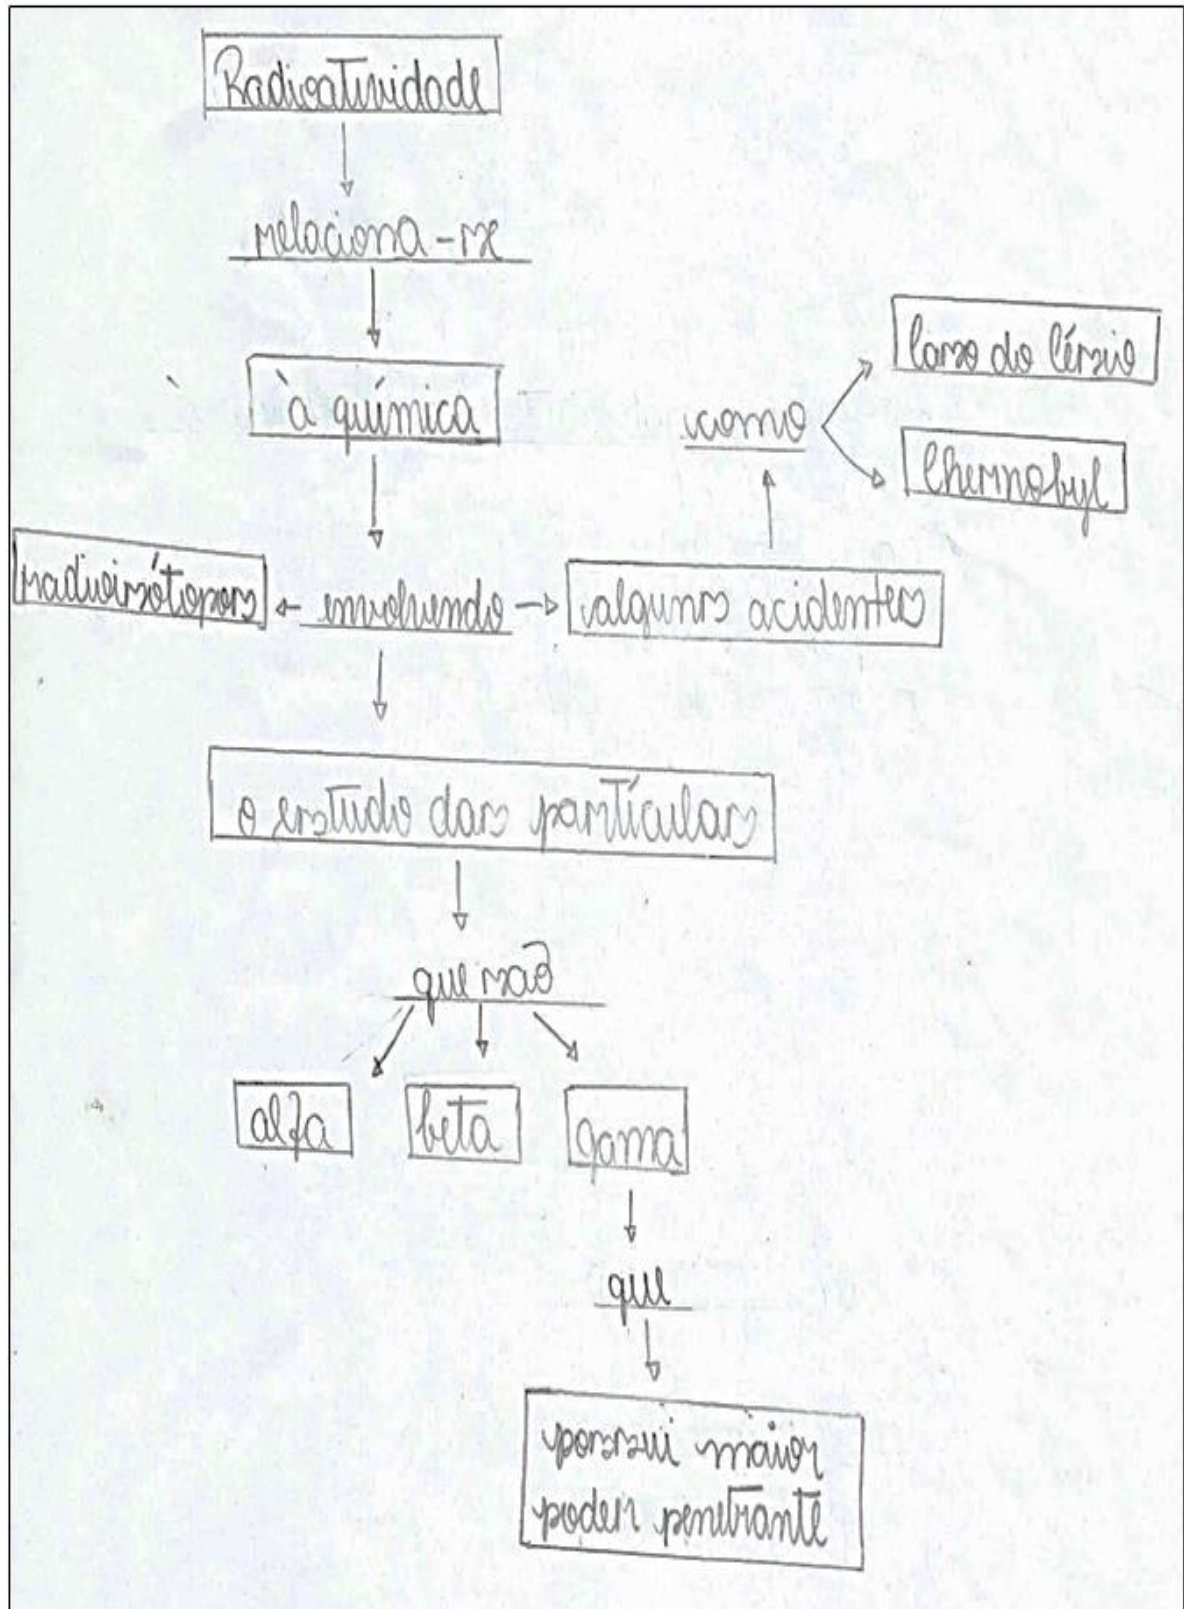 Radioatividade
relaciona-se
à química
Caso do Césio
como
Chernobyl
radioisótopos
envolvendo
alguns acidentes
o estudo das partículas
que são
alfa
beta
gama
que
possui maior
poder penetrante